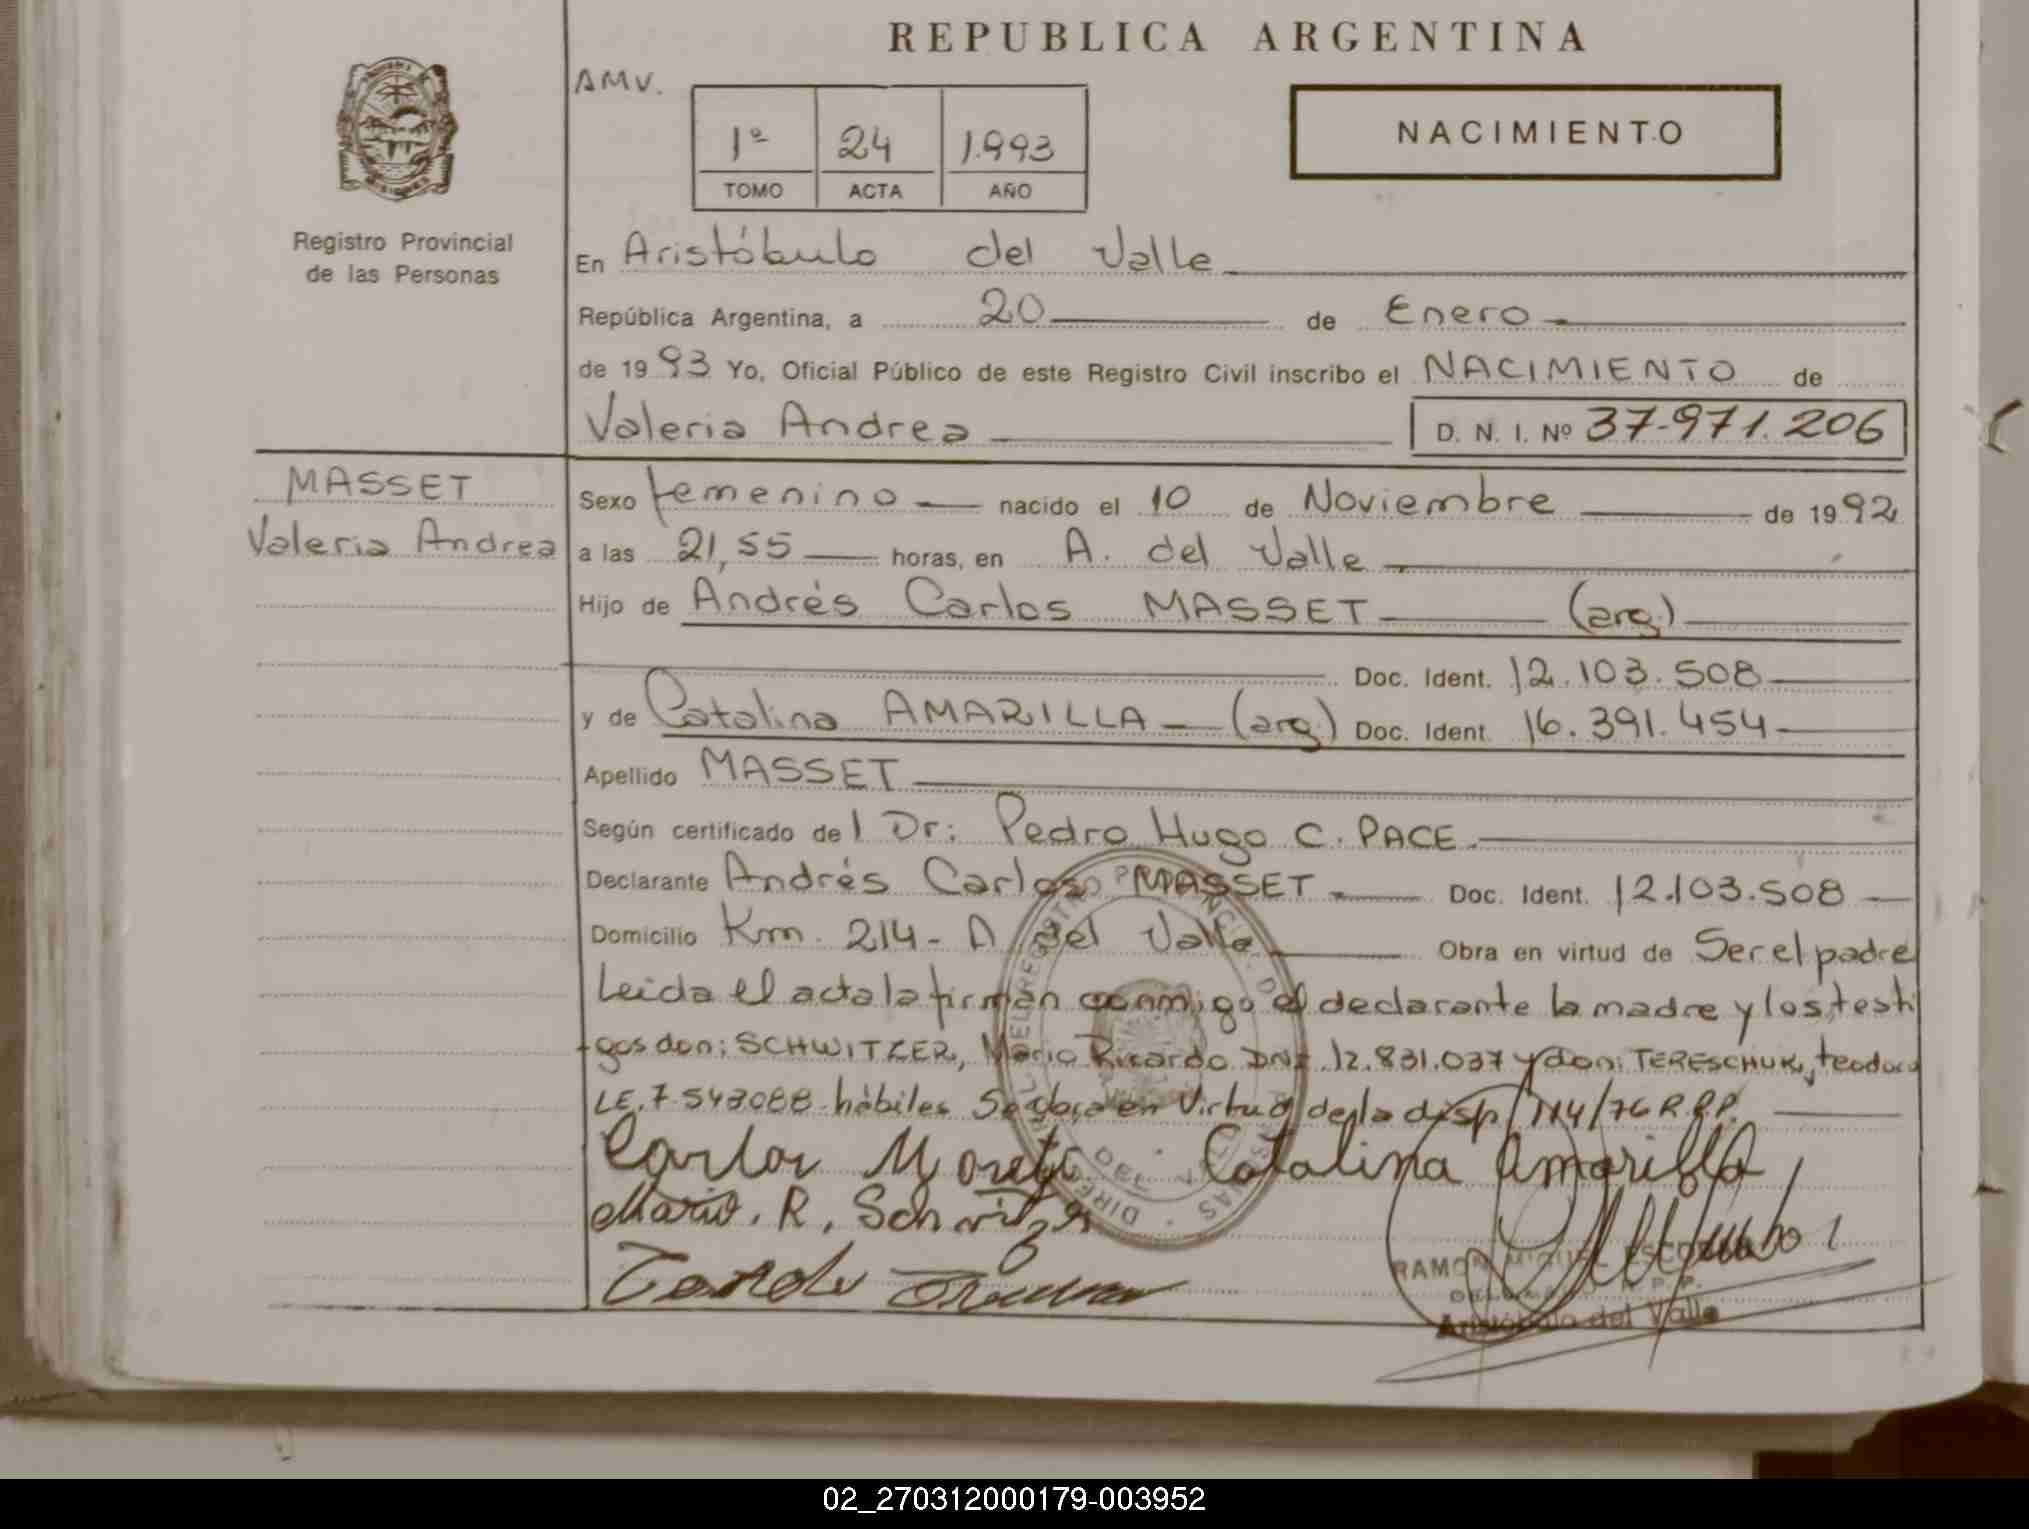 REPUBLICA ARGENTINA
AMV.
1º 24 1.993
TOMO ACTA AÑO
NACIMIENTO
Registro Provincial
de las Personas
En Aristóbulo del Valle
República Argentina, a 20 de Enero
de 1993 Yo, Oficial Público de este Registro Civil inscribo el NACIMIENTO de
Valeria Andrea D. N. I. Nº 37-971.206
MASSET
Valeria Andrea
Sexo femenino nacido el 10 de Noviembre de 1992
a las 21,55 horas, en A. del Valle
Hijo de Andrés Carlos MASSET (arg.)
Doc. Ident. 12.103.508
y de Catalina AMARILLA (arg.) Doc. Ident. 16.391.454
Apellido MASSET
Según certificado del Dr: Pedro Hugo C. PACE.
Declarante Andrés Carlos MASSET Doc. Ident. 12.103.508
Domicilio Km. 214- A del Valle Obra en virtud de Ser el padre
Leida el acta la firman conmigo el declarante la madre y los testi
gos don; SCHWITZER, Mario Ricardo DNI 12.831.037 y don; TERESCHUK, teodoro
LE. 7.543088 hábiles Se obra en Virtud de la disp/114/76 R.P.P.
Carlos Catalina Amarilla
Mario. R, Schwitzer
RAMON MIGUEL
Aristóbulo del Valle
02_270312000179-003952